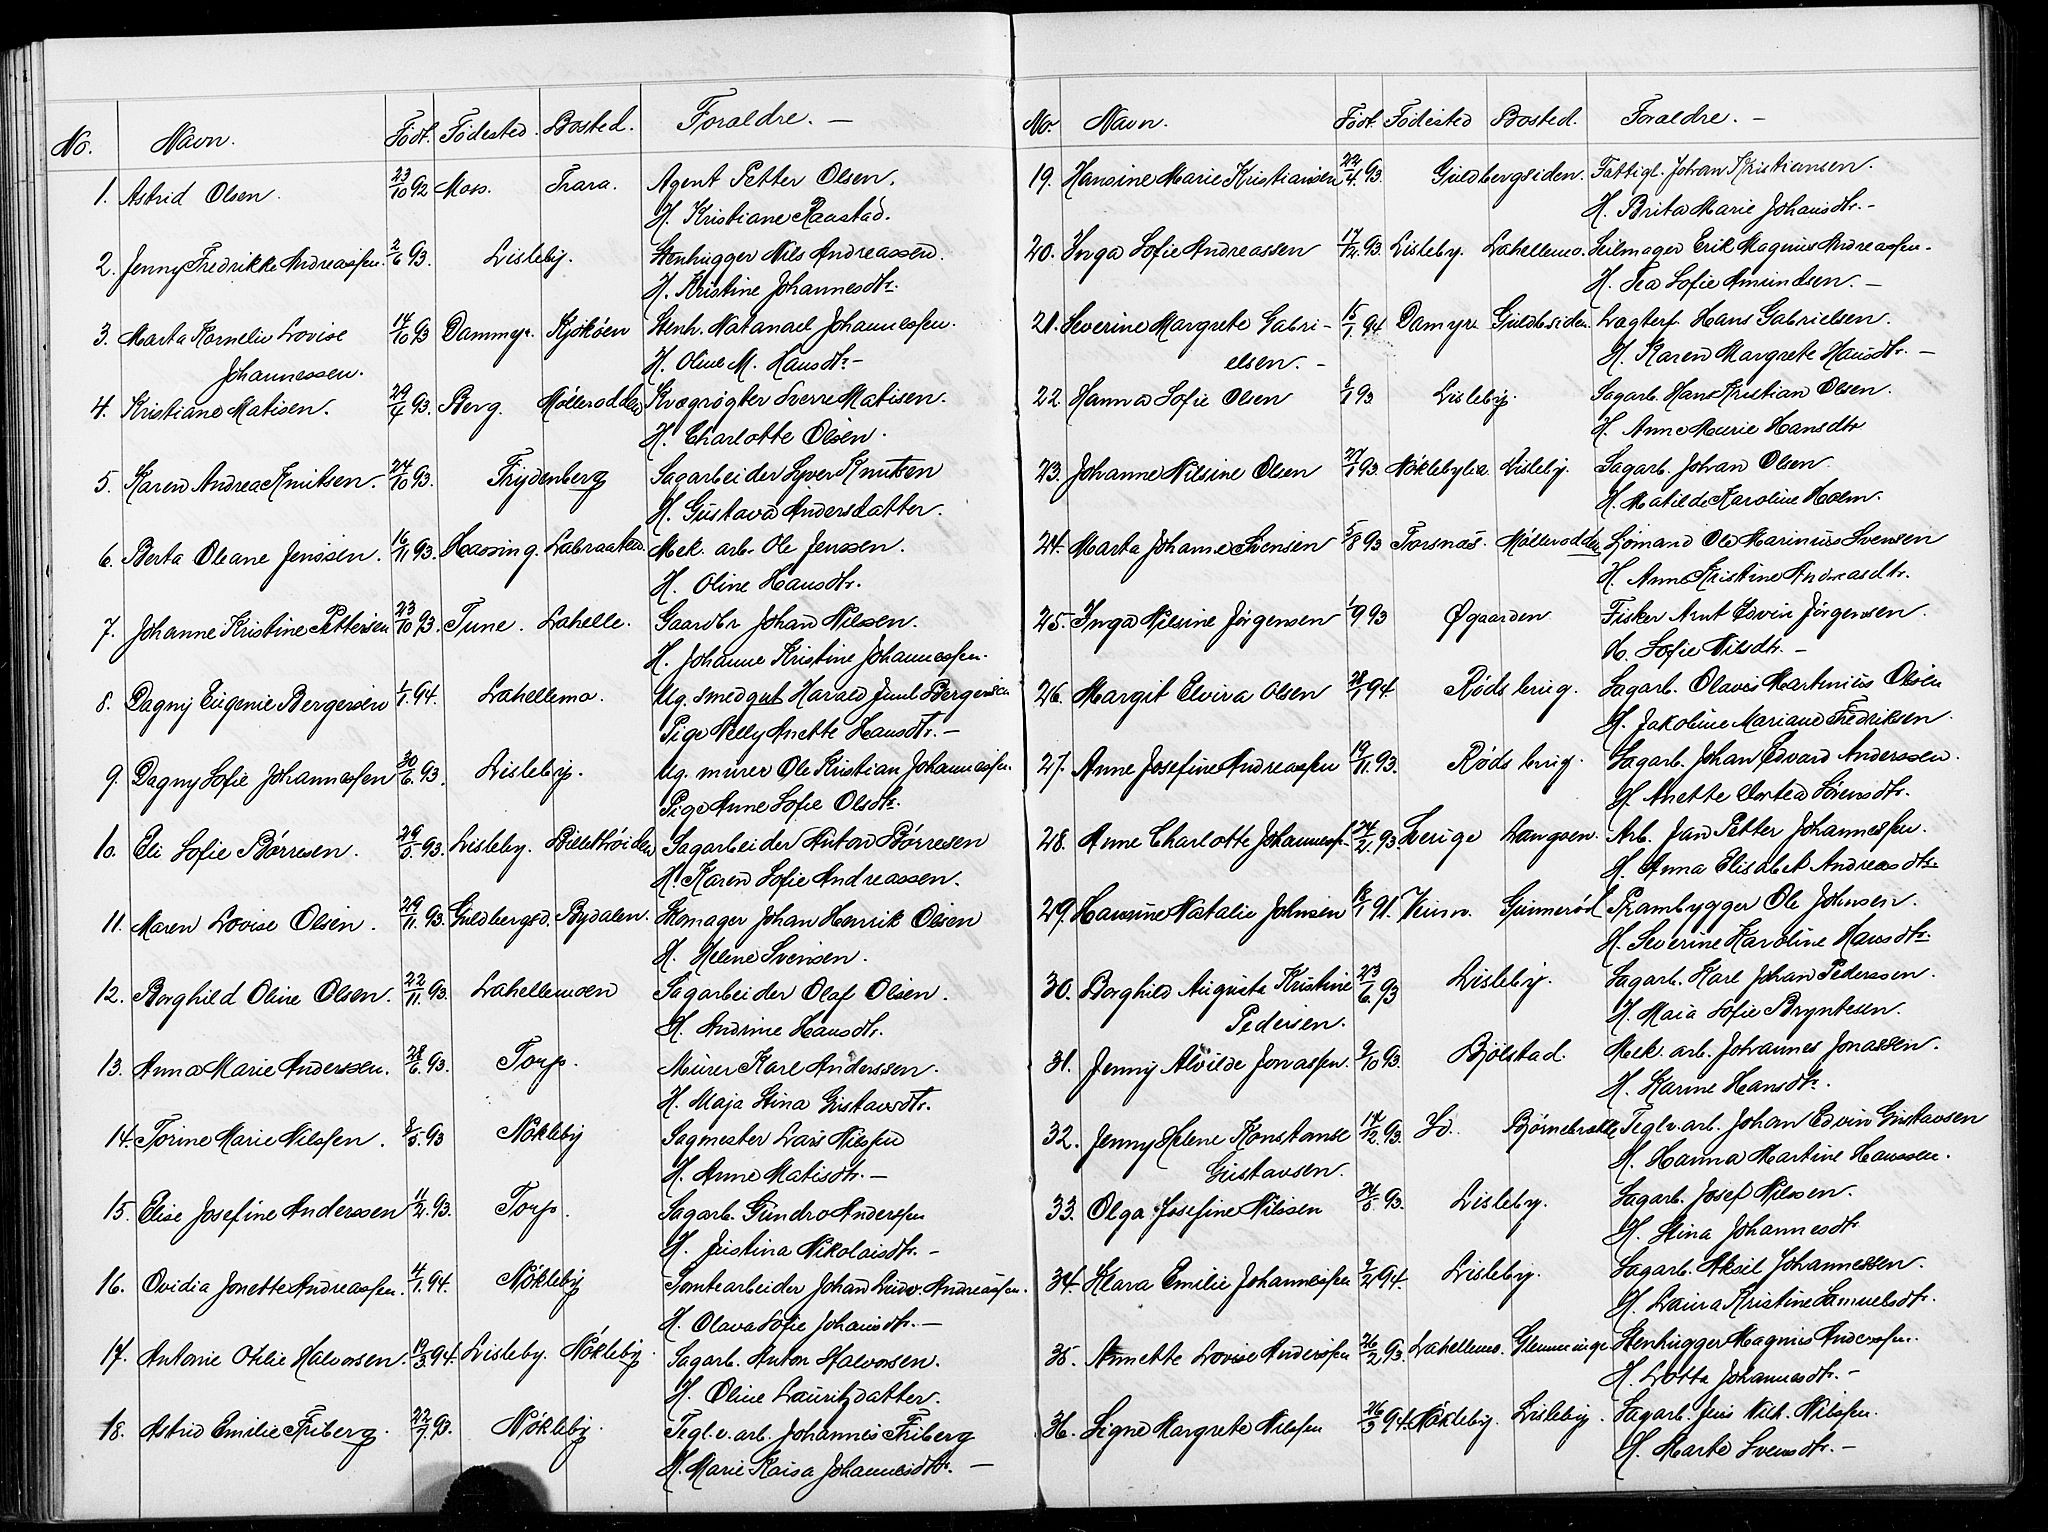 No. Navn. Født. Födested. Bosted. Foraldre. —
1. Astrid Olsen. 23/10 92 Moss. Trara. Agent Petter Olsen.
H. Kristiane Raastad.
2. Jenny Fredrikke Andreassen. 2/6 93. Lisleby. Stenhugger Nils Andreassen.
H. Kristine Johannesdtr.
3. Marta Kornelia Lovise 14/10 93 Dammyr. Kjököen Stenh. Natanael Johannessen.
Johannessen. H. Oline M. Hansdtr. —
4. Kristiane Matisen. 29/4 93. Berg. Möllerodden Kvægrøgter Sverre Matisen.
H. Charlotte Olsen.
5. Karen Andrea Knutsen. 24/10 93. Frydenberg Sagarbeider Syver Knutsen
H. Gustava Andersdatter.
6. Berta Oleane Jenssen. 16/11 93. Hassing. Labraaten. Mek. arb. Ole Jenssen.
H. Oline Hansdtr.
7. Johanne Kristine Pettersen 23/10 93. Tune. Lahelle. Gaardbr. Johan Nilssen.
H. Johanne Kristine Johannessen.
8. Dagny Eugenie Bergersen 1/1. 94. Lahellemo. Ug. smedgut Harald Juul Bergersen
Pige Nelly Anette Hansdtr. —
9. Dagny Sofie Johannessen 30/6. 93. Lisleby. Ug. murer Ole Kristian Johannessen.
Pige Anne Sofie Olsdtr.
10. Eli Sofie Börresen. 29/5. 93. Lisleby. Sagarbeider Anton Börresen
H. Karen Sofie Andreassen.
11. Maren Lovise Olsen. 29/11. 93. Guldbergsd. Bydalen. Skomager Johan Henrik Olsen
H. Helene Svensen.
12. Borghild Oline Olsen. 22/11. 93. Lahellemoen Sagarbeider Olaf Olsen.
H. Andrine Hansdtr.
13. Anna Marie Anderssen. 28/6. 93. Torp. Murer Karl Anderssen.
H. Maja Stina Gustavsdtr.
14. Torine Marie Nilssen. 8/5. 93 Nökleby Sagmester Lars Nilssen
H. Anne Matisdtr. —
15. Elise Josefine Anderssen 11/2. 93. Torp. Sagarb. Gundro Anderssen
H. Justina Nikolaisdtr. —
16. Ovidia Jonette Andreassen. 4/1. 94. Nökleby Tomtearbeider Johan Ludv. Andreassen.
H. Olava Sofie Johansdtr. —
17. Antonie Otilie Halvorsen. 12/3 94. Lisleby. Nökleby. Sagarb. Anton Halvorsen.
H. Oline Lauritzdatter.
18. Astrid Emilie Friberg. 22/7. 93. Nökleby. Tegl.v. arb. Johannes Friberg
H. Marie Kaisa Johannesdtr. —
No. Navn. Født. Födested Bosted. Foraldre. —
19. Hansine Marie Kristiansen 22/4. 93. Guldbergsiden. Fattigl. Johan Kristiansen.
H. Brita Marie Johansdtr. —
20. Inga Sofie Andreassen 17/12. 93. Lisleby. Lahellemo. Seilmager Erik Magnus Andreassen.
H. Tea Sofie Amundsen. —
21. Severine Margrete Gabri- 15/1. 94 Damyr. Guldbsiden. Lægterf. Hans Gabrielsen.
elsen. — H. Karen Margrete Hansdtr. —
22 Hanna Sofie Olsen 8/1 93 Lisleby. Sagarb. Hans Kristian Olsen.
H. Anne Marie Hansdtr
23. Johanne Nilsine Olsen 27/1 93 Nöklebylia Lisleby. Sagarb. Johan Olsen.
H. Matilde Karoline Holm.
24. Marta Johanne Svensen 5/8 93 Torsnæs. Möllerodden Sömand Ole Marinius Svensen
H. Anne Kristine Andreasdtr.
25. Inga Nilsine Jörgensen 1/9 93 Øgaarden Fisker Arnt Edvin Jörgensen.
H. Sofie Nilsdtr. —
26. Margit Elvira Olsen 28/1 94 Röds brug. Sagarb. Olavis Martinius Olsen
H. Jakobine Mariane Fredriksen.
27. Anne Josefine Andreassen 19/11. 93. Röds brug. Sagarb. Johan Edvard Anderssen.
H. Anette Dortea Sörensdtr.
28. Anne Charlotte Johanness. 24/2. 93 Sverige Langöen. Arb. Jan Petter Johannessen.
H. Anna Elisabet Andreasdtr.
29. Hansine Natalie Johnsen 18/1 91. Veum. Gunnerød Prambygger Ole Johnsen.
H. Severine Karoline Hansdtr.
30. Borghild Augusta Kristine 23/6. 93 Lisleby. Sagarb. Karl Johan Pederssen.
Pedersen. H. Maia Sofie Bryntesen.
31. Jenny Alvilde Jonassen. 9/10 93. Bjölstad. Mek. arb. Johannes Jonassen.
H. Karine Hansdtr.
32. Jenny Helene Konstanse 14/12. 93. Id. Bjørnebratte Teglv. arb. Johan Edvin Gustavsen
Gustavsen. H. Hanna Martine Hanssen.
33. Olga Josefine Nilssen 24/5. 93. Lisleby. Sagarb. Josef Nilssen.
H. Stina Johannesdtr
34. Klara Emilie Johannessen 9/2 94. Lisleby. Sagarb. Aksel Johannessen.
H. Laura Kristine Samuelsdtr.
35. Annette Lovise Anderssen 26/2 93. Lahellemo. Glemminge Stenhugger Magnus Anderssen.
H. Lotta Johannesdtr. —
36. Signe Margrete Nilssen 26/3 94. Nökleby. Lisleby. Sagarb. Jens Nilh. Nilssen.
H. Marte Svensdtr. —